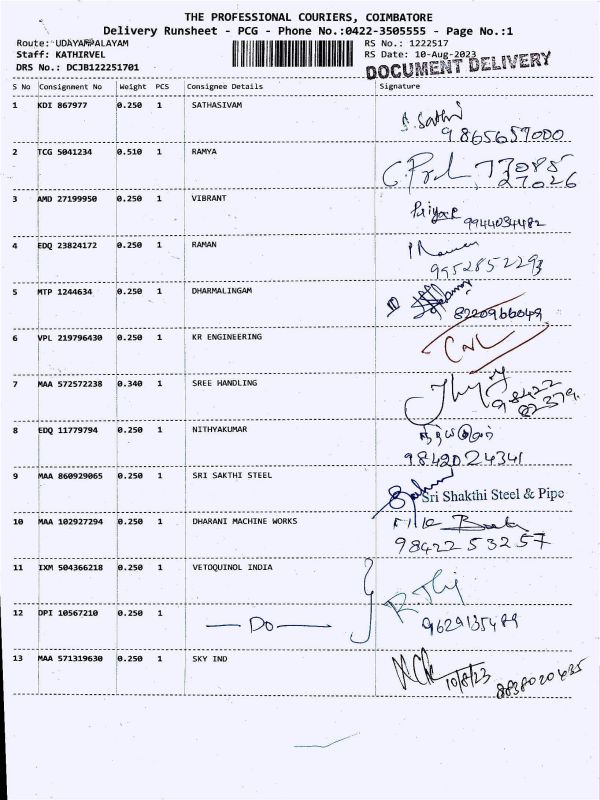 THE PROFESSIONAL COURIERS, COIMBATORE
Delivery Runsheet - PCG - Phone No.:0422-3505555 - Page No.:1
Route: UDAYAMPALAYAM RS No.: 1222517
Staff: KATHIRVEL RS Date: 10-Aug-2023
DRS No.: DCJB122251701 DOCUMENT DELIVERY
S No Consignment No Weight PCS Consignee Details Signature
1 KDI 867977 0.250 1 SATHASIVAM
S. Sathi
9865657000
2 TCG 5041234 0.510 1 RAMYA
77085
27026
3 AMD 27199950 0.250 1 VIBRANT
Priya
9944034482
4 EDQ 23824172 0.250 1 RAMAN
Raman
9952852293
5 MTP 1244634 0.250 1 DHARMALINGAM
8220966049
6 VPL 219796430 0.250 1 KR ENGINEERING
CNL
7 MAA 572572238 0.340 1 SREE HANDLING
98422
82379
8 EDQ 11779794 0.250 1 NITHYAKUMAR
9842024341
9 MAA 860929065 0.250 1 SRI SAKTHI STEEL
Sri Shakthi Steel & Pipe
10 MAA 102927294 0.250 1 DHARANI MACHINE WORKS
98422 53257
11 IXM 504366218 0.250 1 VETOQUINOL INDIA
12 DPI 10567210 0.250 1 — DO —
9629135489
13 MAA 571319630 0.250 1 SKY IND
10/8/23 8838020435